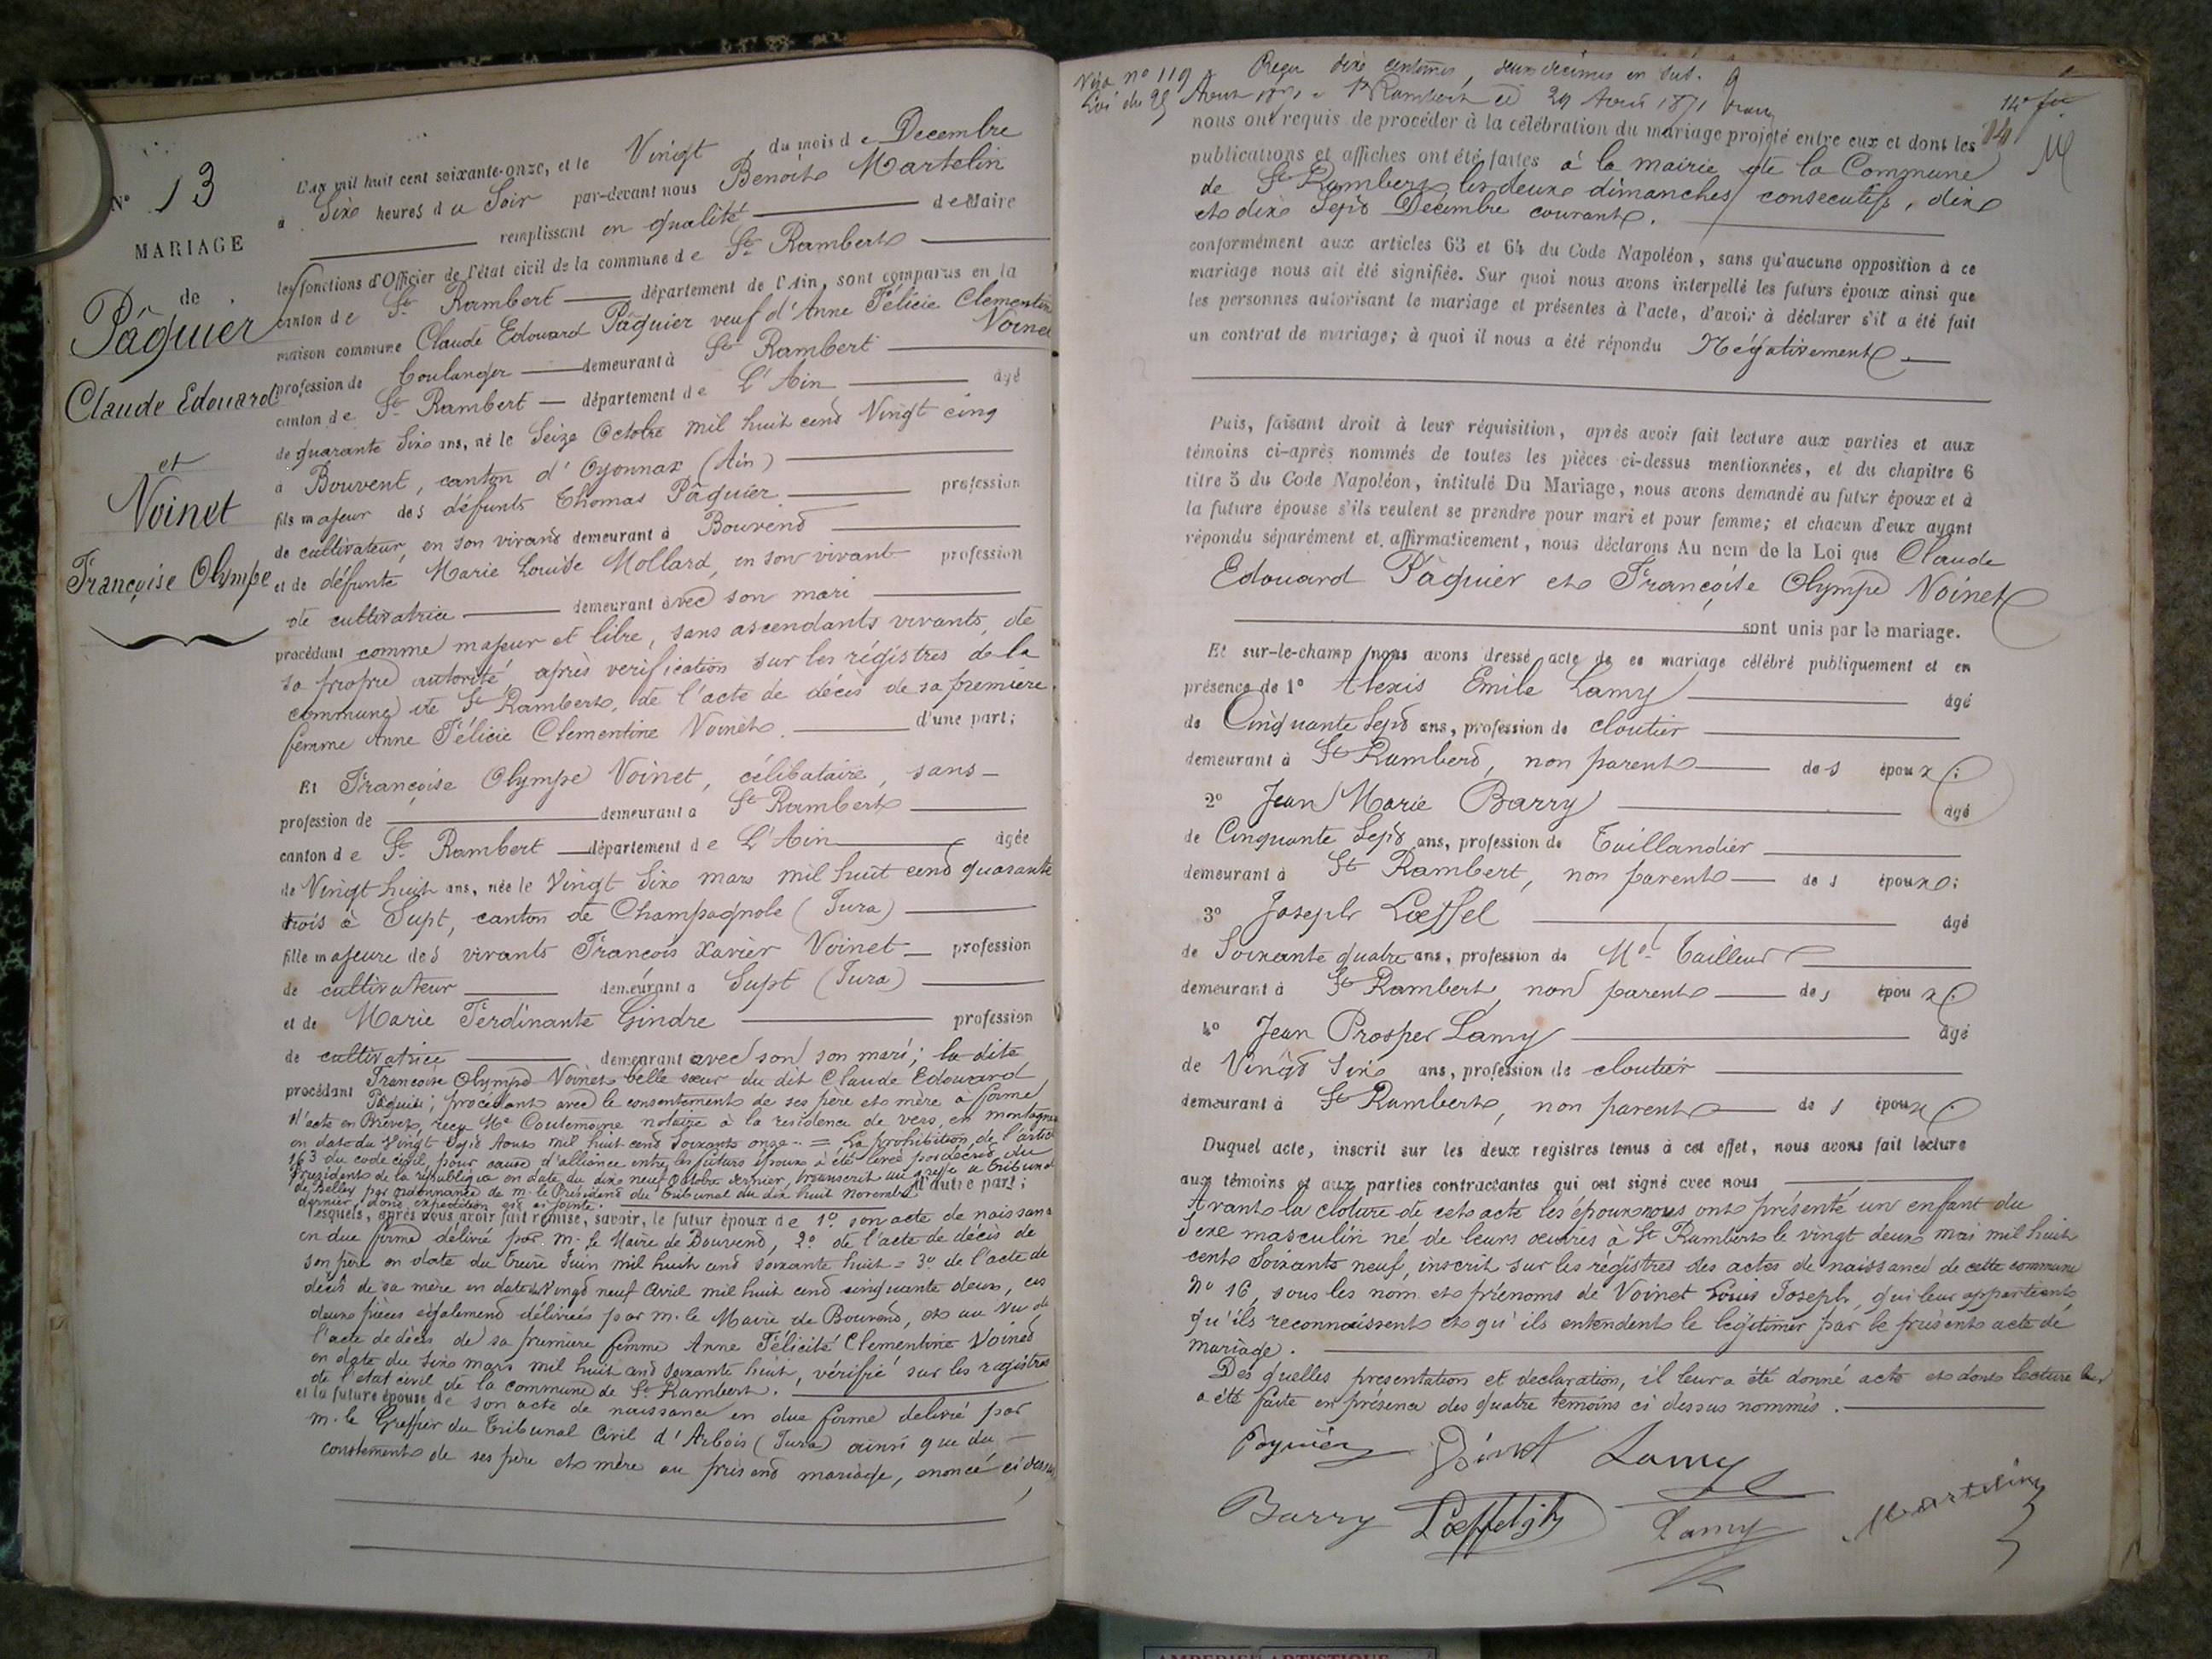 N° 13
MARIAGE
de
Pâquier
Claude Edouard
et
Voinet
Françoise Olympe
L'an mil huit cent soixante-onze, et le Vingt du mois de Decembre
à Six heures du Soir par-devant nous Benoit Martelin
remplissant en qualité de Maire
les fonctions d'Officier de l'état civil de la commune de St Rambert
canton de St Rambert département de l'Ain, sont comparus en la
maison commune Claude Edouard Pâquier veuf d'Anne Félicie Clementine
Voinet
profession de boulanger demeurant à St Rambert
canton de St Rambert département de L'Ain âgé
de quarante Six ans, né le Seize Octobre mil huit cent Vingt cinq
à Bouvent, canton d'Oyonnax (Ain)
fils majeur des défunts Thomas Pâquier profession
de cultivateur, en son vivant demeurant à Bouvent
et de défunte Marie Louise Mollard, en son vivant profession
de cultivatrice demeurant avec son mari
procédant comme majeur et libre, sans ascendants vivants, de
sa propre autorité, après verification sur les régistres de la
commune de St Rambert, de l'acte de décès de sa première
femme Anne Félicie Clementine Voinet. d'une part;
Et Françoise Olympe Voinet, célibataire, sans
profession de demeurant à St Rambert
canton de St Rambert département de L'Ain âgée
de Vingt huit ans, née le Vingt Six mars mil huit cent quarante
trois à Supt, canton de Champagnole (Jura)
fille majeure des vivants François Xavier Voinet profession
de cultivateur demeurant à Supt (Jura)
et de Marie Ferdinante Gindre profession
de cultivatrice demeurant avec son son mari; la dite
procédant Françoise Olympe Voinet belle sœur du dit Claude Edouard
Pâquier; procédant avec le consentement de ses père et mère à forme
d'acte en Brevet, reçu Me Coulemoine notaire à la residence de vers, en montagne
en date du Vingt Sept Aout mil huit cent Soixante onze = La prohibition de l'article
163 du code civil, pour cause d'alliance entre les futurs époux a été levée par décret du
Président de la république en date du dix neuf Octobre dernier, transcrit au greffe du tribunal
de Belley par ordonnance de m. le Président du tribunal du dix huit Novembre d'autre part;
dernier, dont expédition est ci jointe.
Lesquels, après nous avoir fait remise, savoir, le futur époux de 1° son acte de naissance
en due forme délivré par m. le Maire de Bouvent, 2° de l'acte de décès de
son père en date du treize Juin mil huit cent soixante huit = 3° de l'acte de
décès de sa mère en date du Vingt neuf Avril mil huit cent cinquante deux, ces
deux pièces également délivrées par m. le Maire de Bouvent, et au vu de
l'acte de décès de sa première femme Anne Félicité Clementine Voinet
en date du Six mars mil huit cent soixante huit, vérifié sur les registres
de l'état civil de la commune de St Rambert.
et la future épouse de son acte de naissance en due forme délivré par
m. le Greffier du Tribunal Civil d'Arbois (Jura) ainsi que du
constement de ses père et mère au présent mariage, enoncé ci dessus,
Visa n° 119 Reçu dix centimes, deux décimes en sus.
Loi du 25 Aout 1871 St Rambert le 29 Avril 1871
14e fet
14
nous ont requis de procéder à la célébration du mariage projeté entre eux et dont les
publications et affiches ont été faites à la mairie de la Commune
de St Rambert les deux dimanches consecutifs, dix
et dix Sept Decembre courant.
conformément aux articles 63 et 64 du Code Napoléon, sans qu'aucune opposition à ce
mariage nous ait été signifiée. Sur quoi nous avons interpellé les futurs époux ainsi que
les personnes autorisant le mariage et présentes à l'acte, d'avoir à déclarer s'il a été fait
un contrat de mariage; à quoi il nous a été répondu Négativement.
Puis, faisant droit à leur réquisition, après avoir fait lecture aux parties et aux
témoins ci-après nommés de toutes les pièces ci-dessus mentionnées, et du chapitre 6
titre 5 du Code Napoléon, intitulé Du Mariage, nous avons demandé au futur époux et à
la future épouse s'ils veulent se prendre pour mari et pour femme; et chacun d'eux ayant
répondu séparément et affirmativement, nous déclarons Au nom de la Loi que Claude
Edouard Pâquier et Françoise Olympe Voinet
sont unis par le mariage.
Et sur-le-champ nous avons dressé acte de ce mariage célébré publiquement et en
présence de 1° Alexis Emile Lamy âgé
de Cinquante Sept ans, profession de cloutier
demeurant à St Rambert, non parent des époux;
2° Jean Marie Barry âgé
de Cinquante Sept ans, profession de Taillandier
demeurant à St Rambert, non parent des époux;
3° Joseph Lœffel âgé
de Soixante quatre ans, profession de Md Tailleur
demeurant à St Rambert, non parent des époux;
4° Jean Prosper Lamy âgé
de Vingt Six ans, profession de cloutier
demeurant à St Rambert, non parent des époux.
Duquel acte, inscrit sur les deux registres tenus à cet effet, nous avons fait lecture
aux témoins et aux parties contractantes qui ont signé avec nous
Avant la cloture de cet acte les époux nous ont présenté un enfant du
Sexe masculin né de leurs œuvres à St Rambert le vingt deux mai mil huit
cent Soixante neuf, inscrit sur les régistres des actes de naissance de cette commune
N° 16, sous les nom et prénoms de Voinet Louis Joseph, qui leur appartient
qu'ils reconnaissent et qu'ils entendent le légitimer par le présent acte de
mariage.
Des quelles presentation et déclaration, il leur a été donné acte et dont lecture leur
a été faite en présence des quatre témoins ci dessus nommés.
Pâquier Voinet Lamy
Barry Lœffel Lamy Martelin